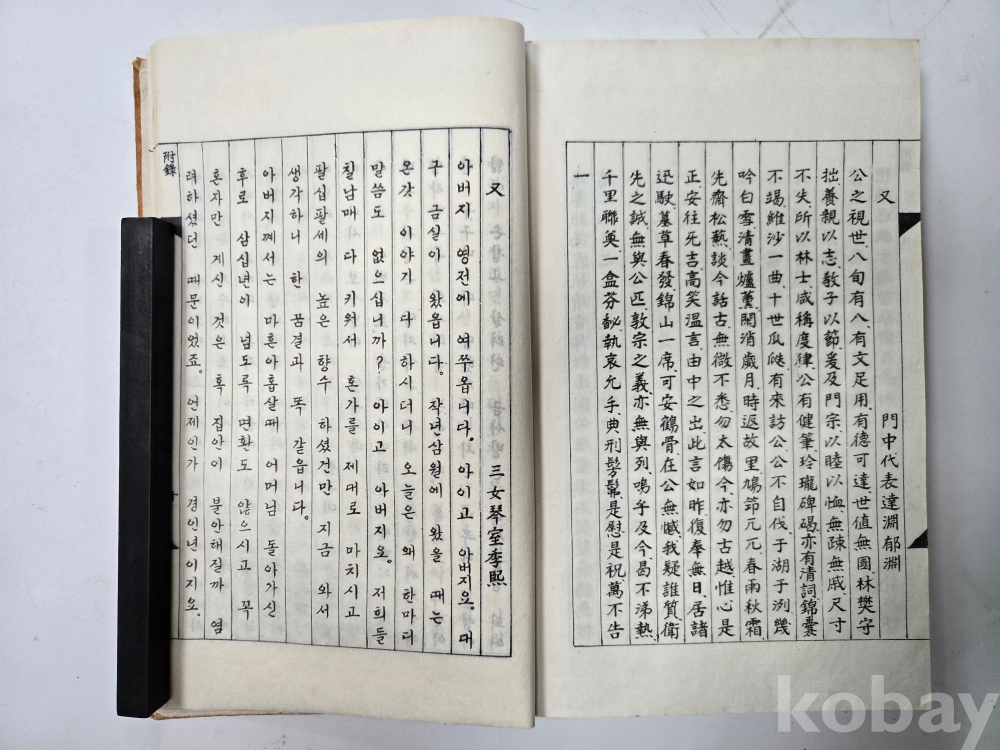 又
門中代表達淵郁淵
公之視世八旬有八有文足用有德可達世值無圖林樊守
拙養親以志敎子以節爰及門宗以睦以恤無疎無戚尺寸
不失所以林士咸稱度律公有健筆玲瓏碑碣亦有淸詞錦囊
不竭維沙一曲十世瓜瓞有來訪公公不自伐于湖于洌幾
吟白雪淸晝爐薰閑消歲月時返故里鳩笻兀兀春雨秋霜
先齋松藝談今話古無微不悉勿太傷今亦勿古越惟心是
正安往旡吉高笑溫言由中之出此言如昨復奉無日居諸
迅駛墓草春發錦山一席可安鶴骨在公無憾我疑誰質衛
先之誠無與公匹敦宗之義亦無與列嗚乎及今曷不涕熱
千里聯奠一盒芬馝執哀允手典刑髣髴是慰是祝萬不告
一
又
三女琴室李熙
아버지 영전에 여쭈옵니다. 아이고 아버지요. 대
구 사 금실이 왔읍니다. 작년삼월에 왔을 때는
온갖 이야기 다 하시더니 오늘은 왜 한마디
말씀도 없으십니까? 아이고 아버지요. 저희들
칠남매 다 키워서 혼가를 제대로 마치시고
팔십팔세의 높은 향수 하셨건만 지금 와서
생각하니 한 꿈결과 똑 같읍니다.
아버지께서는 마흔아홉살때 어머님 돌아가신
후로 삼십년이 넘도록 면환도 않으시고 꼭
혼자만 계신 것은 혹 집안이 불안해질까 염
려하셨던 때문이었죠. 언제인가 경인년이지요.
附錄
kobay